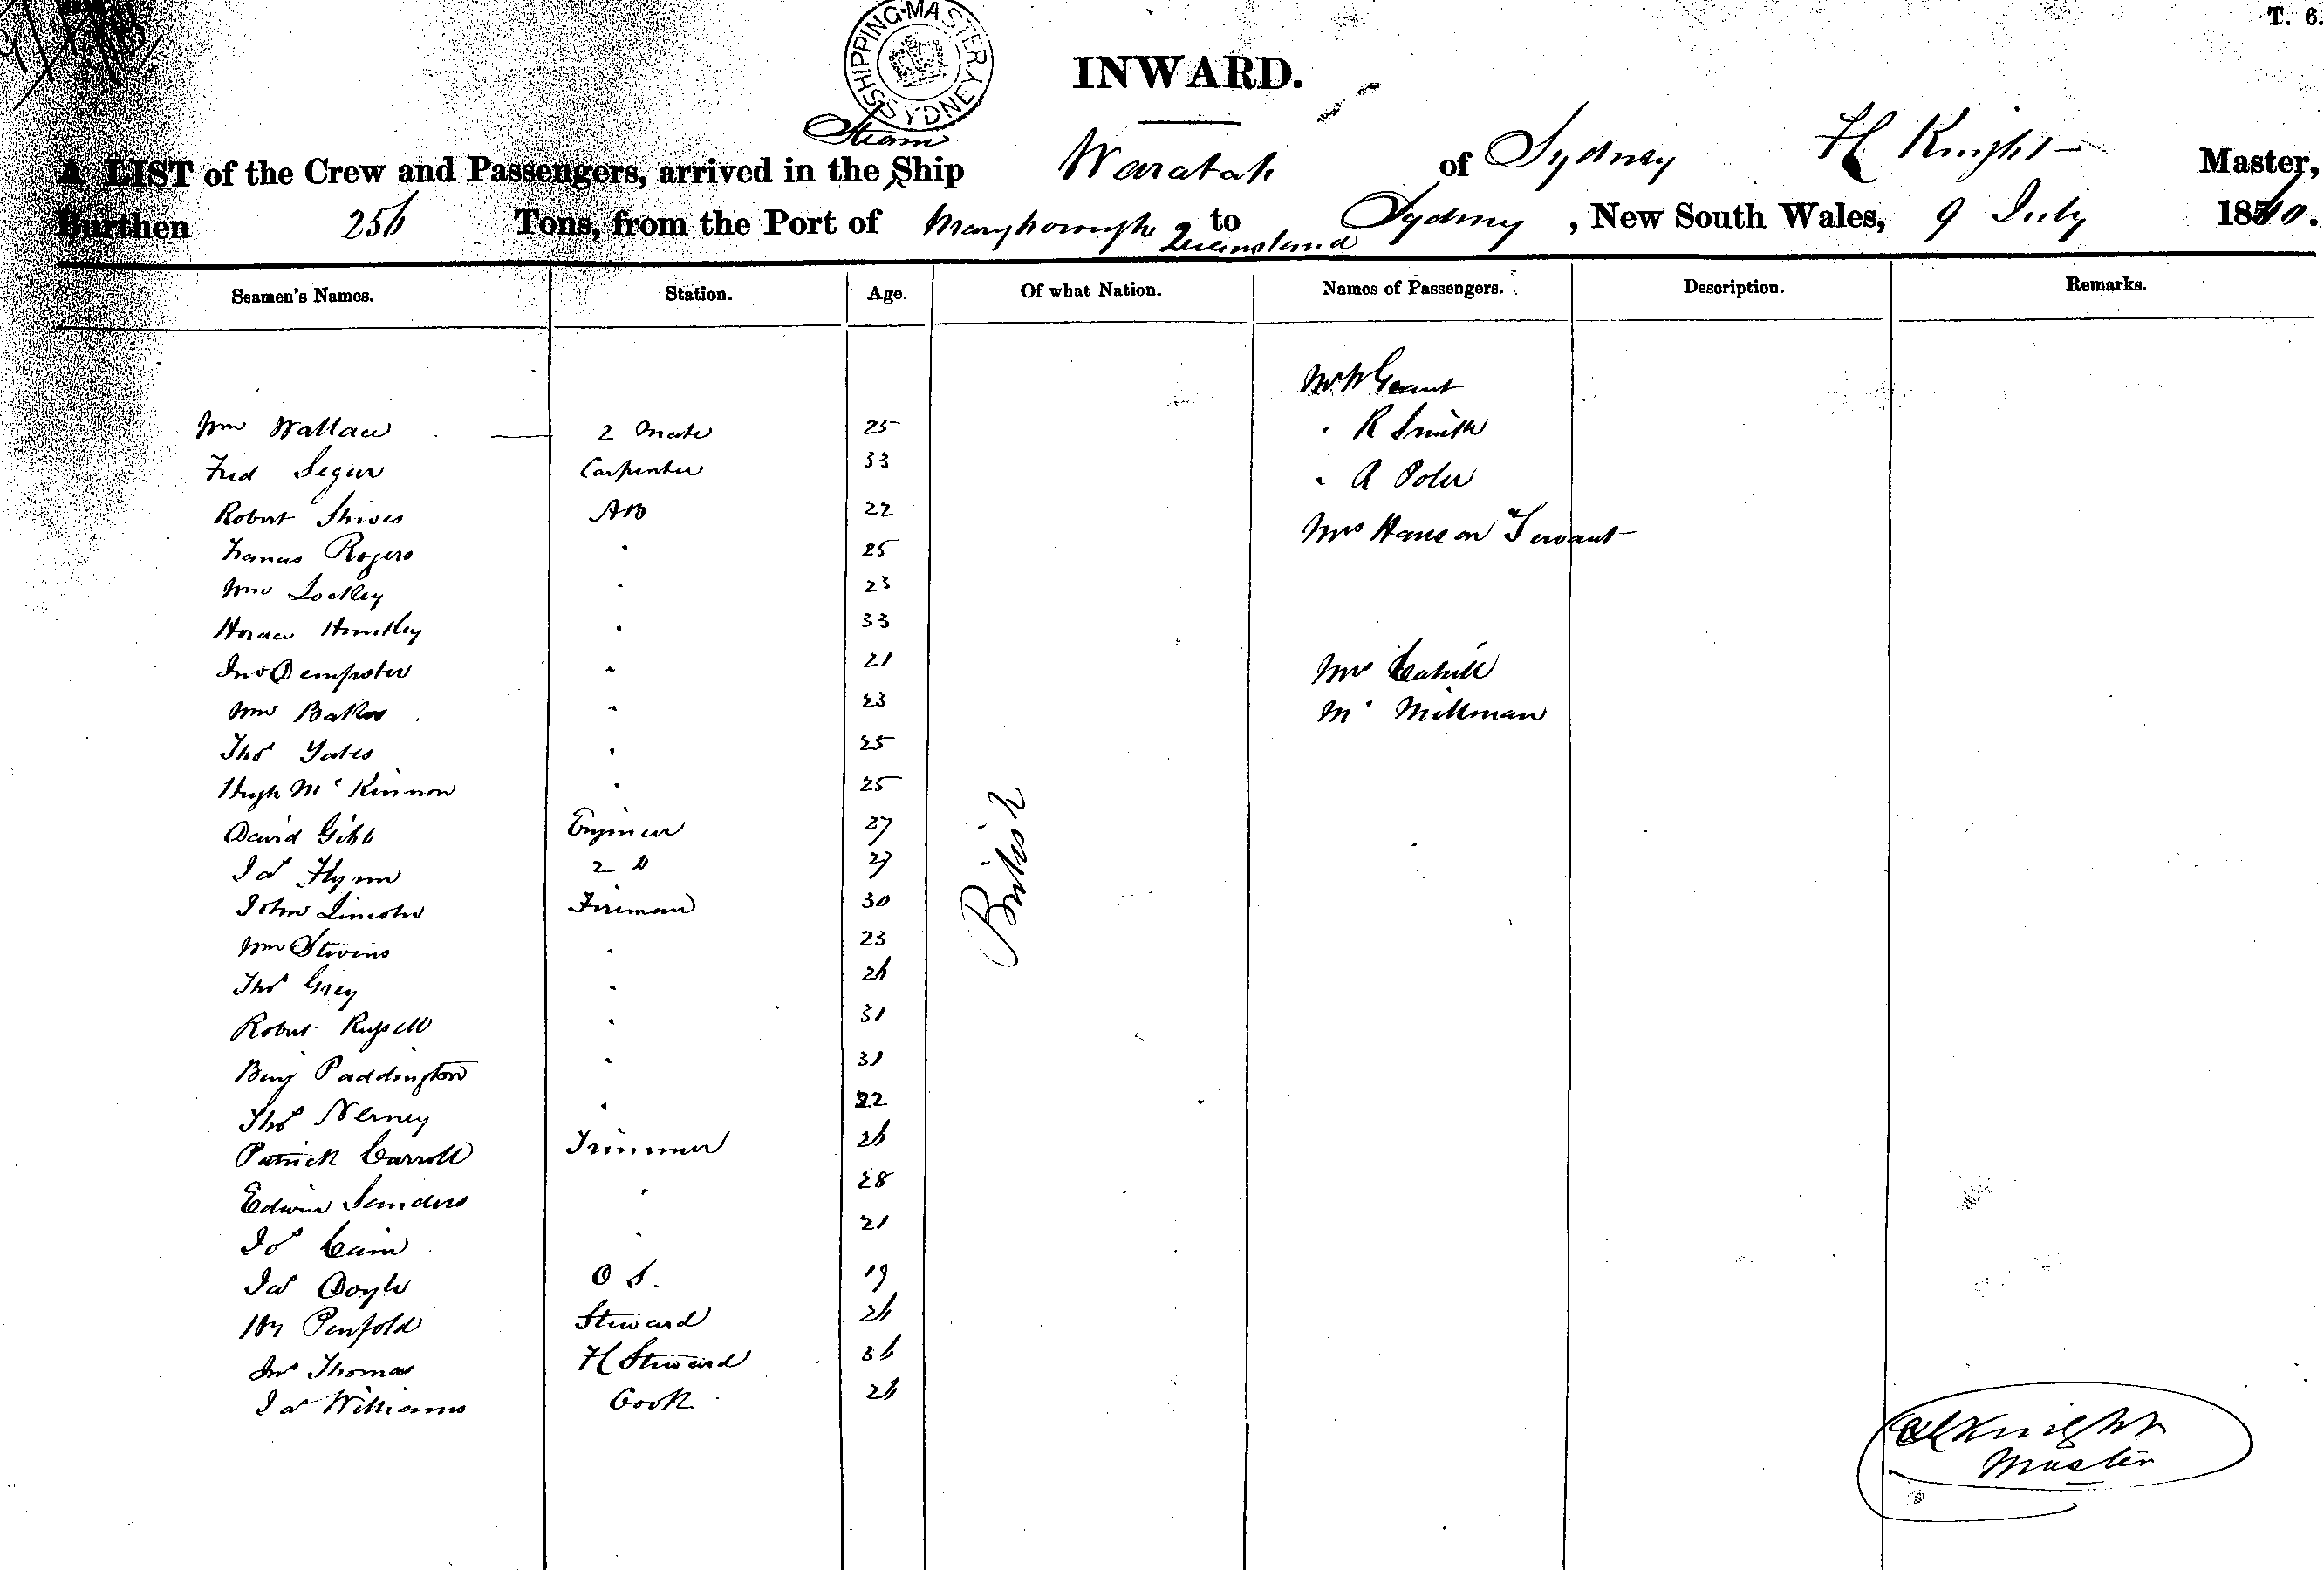 T. 6.
SHIPPING MASTER SYDNEY
INWARD.
Steam
A LIST of the Crew and Passengers, arrived in the Ship Waratah of Sydney H Knight Master,
Burthen 256 Tons, from the Port of Maryborough Queensland to Sydney, New South Wales, 9 July 1860.
Seamen's Names. Station. Age. Of what Nation. Names of Passengers. Description. Remarks.
Mr W Grant
Wm Wallace 2 Mate 25 " R Smith
Fred Segur Carpenter 33 " A Poler
Robert Shives AB 22 Mrs Hanson Servant
Francis Rogers " 25
Wm Lockley " 23
Horace Huntley " 33
Jno Dempster " 21 Mrs Cahill
Wm Baker " 23 Mr Millman
Thos Yates " 25
Hugh McKinnon " 25
David Gibb Engineer 27
Jas Flynn 2 D 27
John Lincoln Fireman 30
British
Wm Stevens " 23
Thos Grey " 26
Robert Russell " 31
Benj Paddington " 31
Thos Nerney " 22
Patrick Carroll Trimmer 26
Edwin Sanders " 28
Jos Cain " 21
Jas Doyle O S. 19
Hy Penfold Steward 26
Jno Thomas F C Steward 36
Jas Williams Cook 26
H Knight
Master